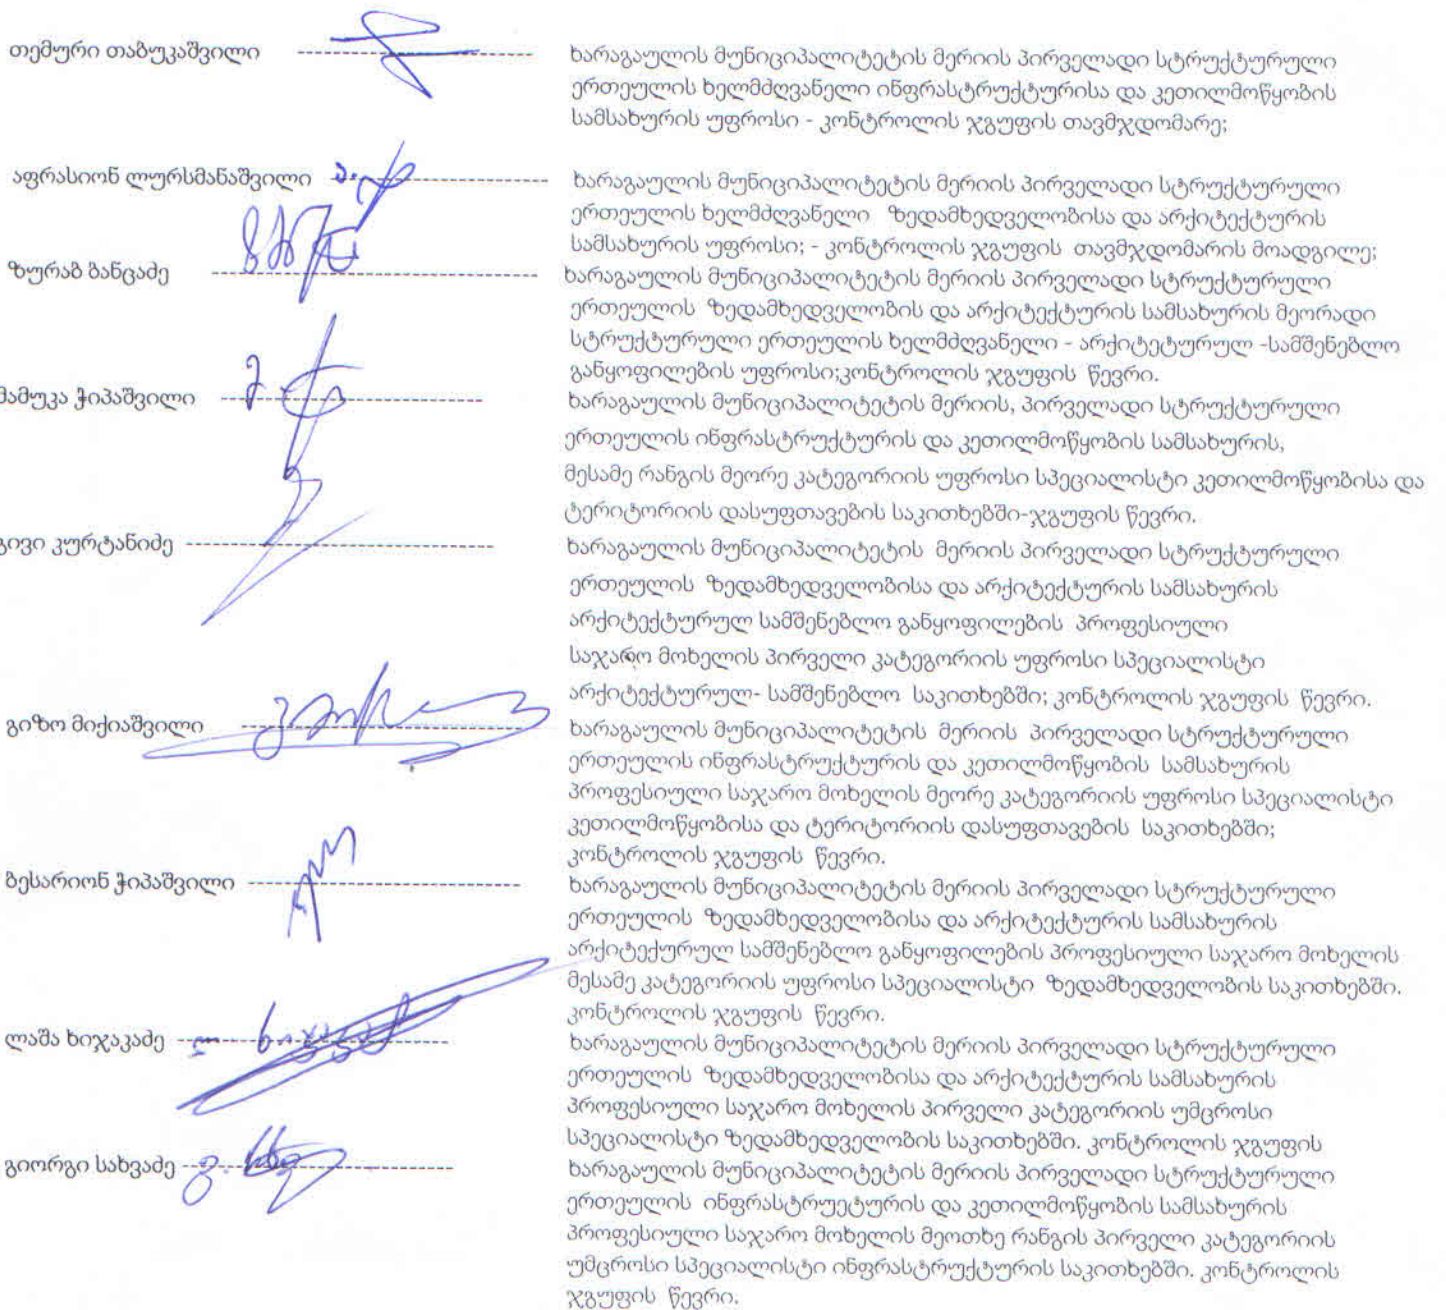 თემური თაბუკაშვილი ----------------------- ხარაგაულის მუნიციპალიტეტის მერიის პირველადი სტრუქტურული
ერთეულის ხელმძღვანელი ინფრასტრუქტურისა და კეთილმოწყობის
სამსახურის უფროსი - კონტროლის ჯგუფის თავმჯდომარე;
აფრასიონ ლურსმანაშვილი ----------------------- ხარაგაულის მუნიციპალიტეტის მერიის პირველადი სტრუქტურული
ერთეულის ხელმძღვანელი ზედამხედველობისა და არქიტექტურის
სამსახურის უფროსი; - კონტროლის ჯგუფის თავმჯდომარის მოადგილე;
ზურაბ ბანცაძე ----------------------- ხარაგაულის მუნიციპალიტეტის მერიის პირველადი სტრუქტურული
ერთეულის ზედამხედველობის და არქიტექტურის სამსახურის მეორადი
სტრუქტურული ერთეულის ხელმძღვანელი - არქიტეტურულ -სამშენებლო
განყოფილების უფროსი;კონტროლის ჯგუფის წევრი.
მამუკა ჭიპაშვილი ----------------------- ხარაგაულის მუნიციპალიტეტის მერიის, პირველადი სტრუქტურული
ერთეულის ინფრასტრუქტურის და კეთილმოწყობის სამსახურის,
მესამე რანგის მეორე კატეგორიის უფროსი სპეციალისტი კეთილმოწყობისა და
ტერიტორიის დასუფთავების საკითხებში-ჯგუფის წევრი.
გივი კურტანიძე ----------------------- ხარაგაულის მუნიციპალიტეტის მერიის პირველადი სტრუქტურული
ერთეულის ზედამხედველობისა და არქიტექტურის სამსახურის
არქიტექტურულ სამშენებლო განყოფილების პროფესიული
საჯარო მოხელის პირველი კატეგორიის უფროსი სპეციალისტი
არქიტექტურულ- სამშენებლო საკითხებში; კონტროლის ჯგუფის წევრი.
გიზო მიქიაშვილი ----------------------- ხარაგაულის მუნიციპალიტეტის მერიის პირველადი სტრუქტურული
ერთეულის ინფრასტრუქტურის და კეთილმოწყობის სამსახურის
პროფესიული საჯარო მოხელის მეორე კატეგორიის უფროსი სპეციალისტი
კეთილმოწყობისა და ტერიტორიის დასუფთავების საკითხებში;
კონტროლის ჯგუფის წევრი.
ბესარიონ ჭიპაშვილი ----------------------- ხარაგაულის მუნიციპალიტეტის მერიის პირველადი სტრუქტურული
ერთეულის ზედამხედველობისა და არქიტექტურის სამსახურის
არქიტექურულ სამშენებლო განყოფილების პროფესიული საჯარო მოხელის
მესამე კატეგორიის უფროსი სპეციალისტი ზედამხედველობის საკითხებში.
კონტროლის ჯგუფის წევრი.
ლაშა ხიჯაკაძე ----------------------- ხარაგაულის მუნიციპალიტეტის მერიის პირველადი სტრუქტურული
ერთეულის ზედამხედველობისა და არქიტექტურის სამსახურის
პროფესიული საჯარო მოხელის პირველი კატეგორიის უმცროსი
სპეციალისტი ზედამხედველობის საკითხებში. კონტროლის ჯგუფის
გიორგი სახვაძე ----------------------- ხარაგაულის მუნიციპალიტეტის მერიის პირველადი სტრუქტურული
ერთეულის ინფრასტრუეტურის და კეთილმოწყობის სამსახურის
პროფესიული საჯარო მოხელის მეოთხე რანგის პირველი კატეგორიის
უმცროსი სპეციალისტი ინფრასტრუქტურის საკითხებში. კონტროლის
ჯგუფის წევრი.